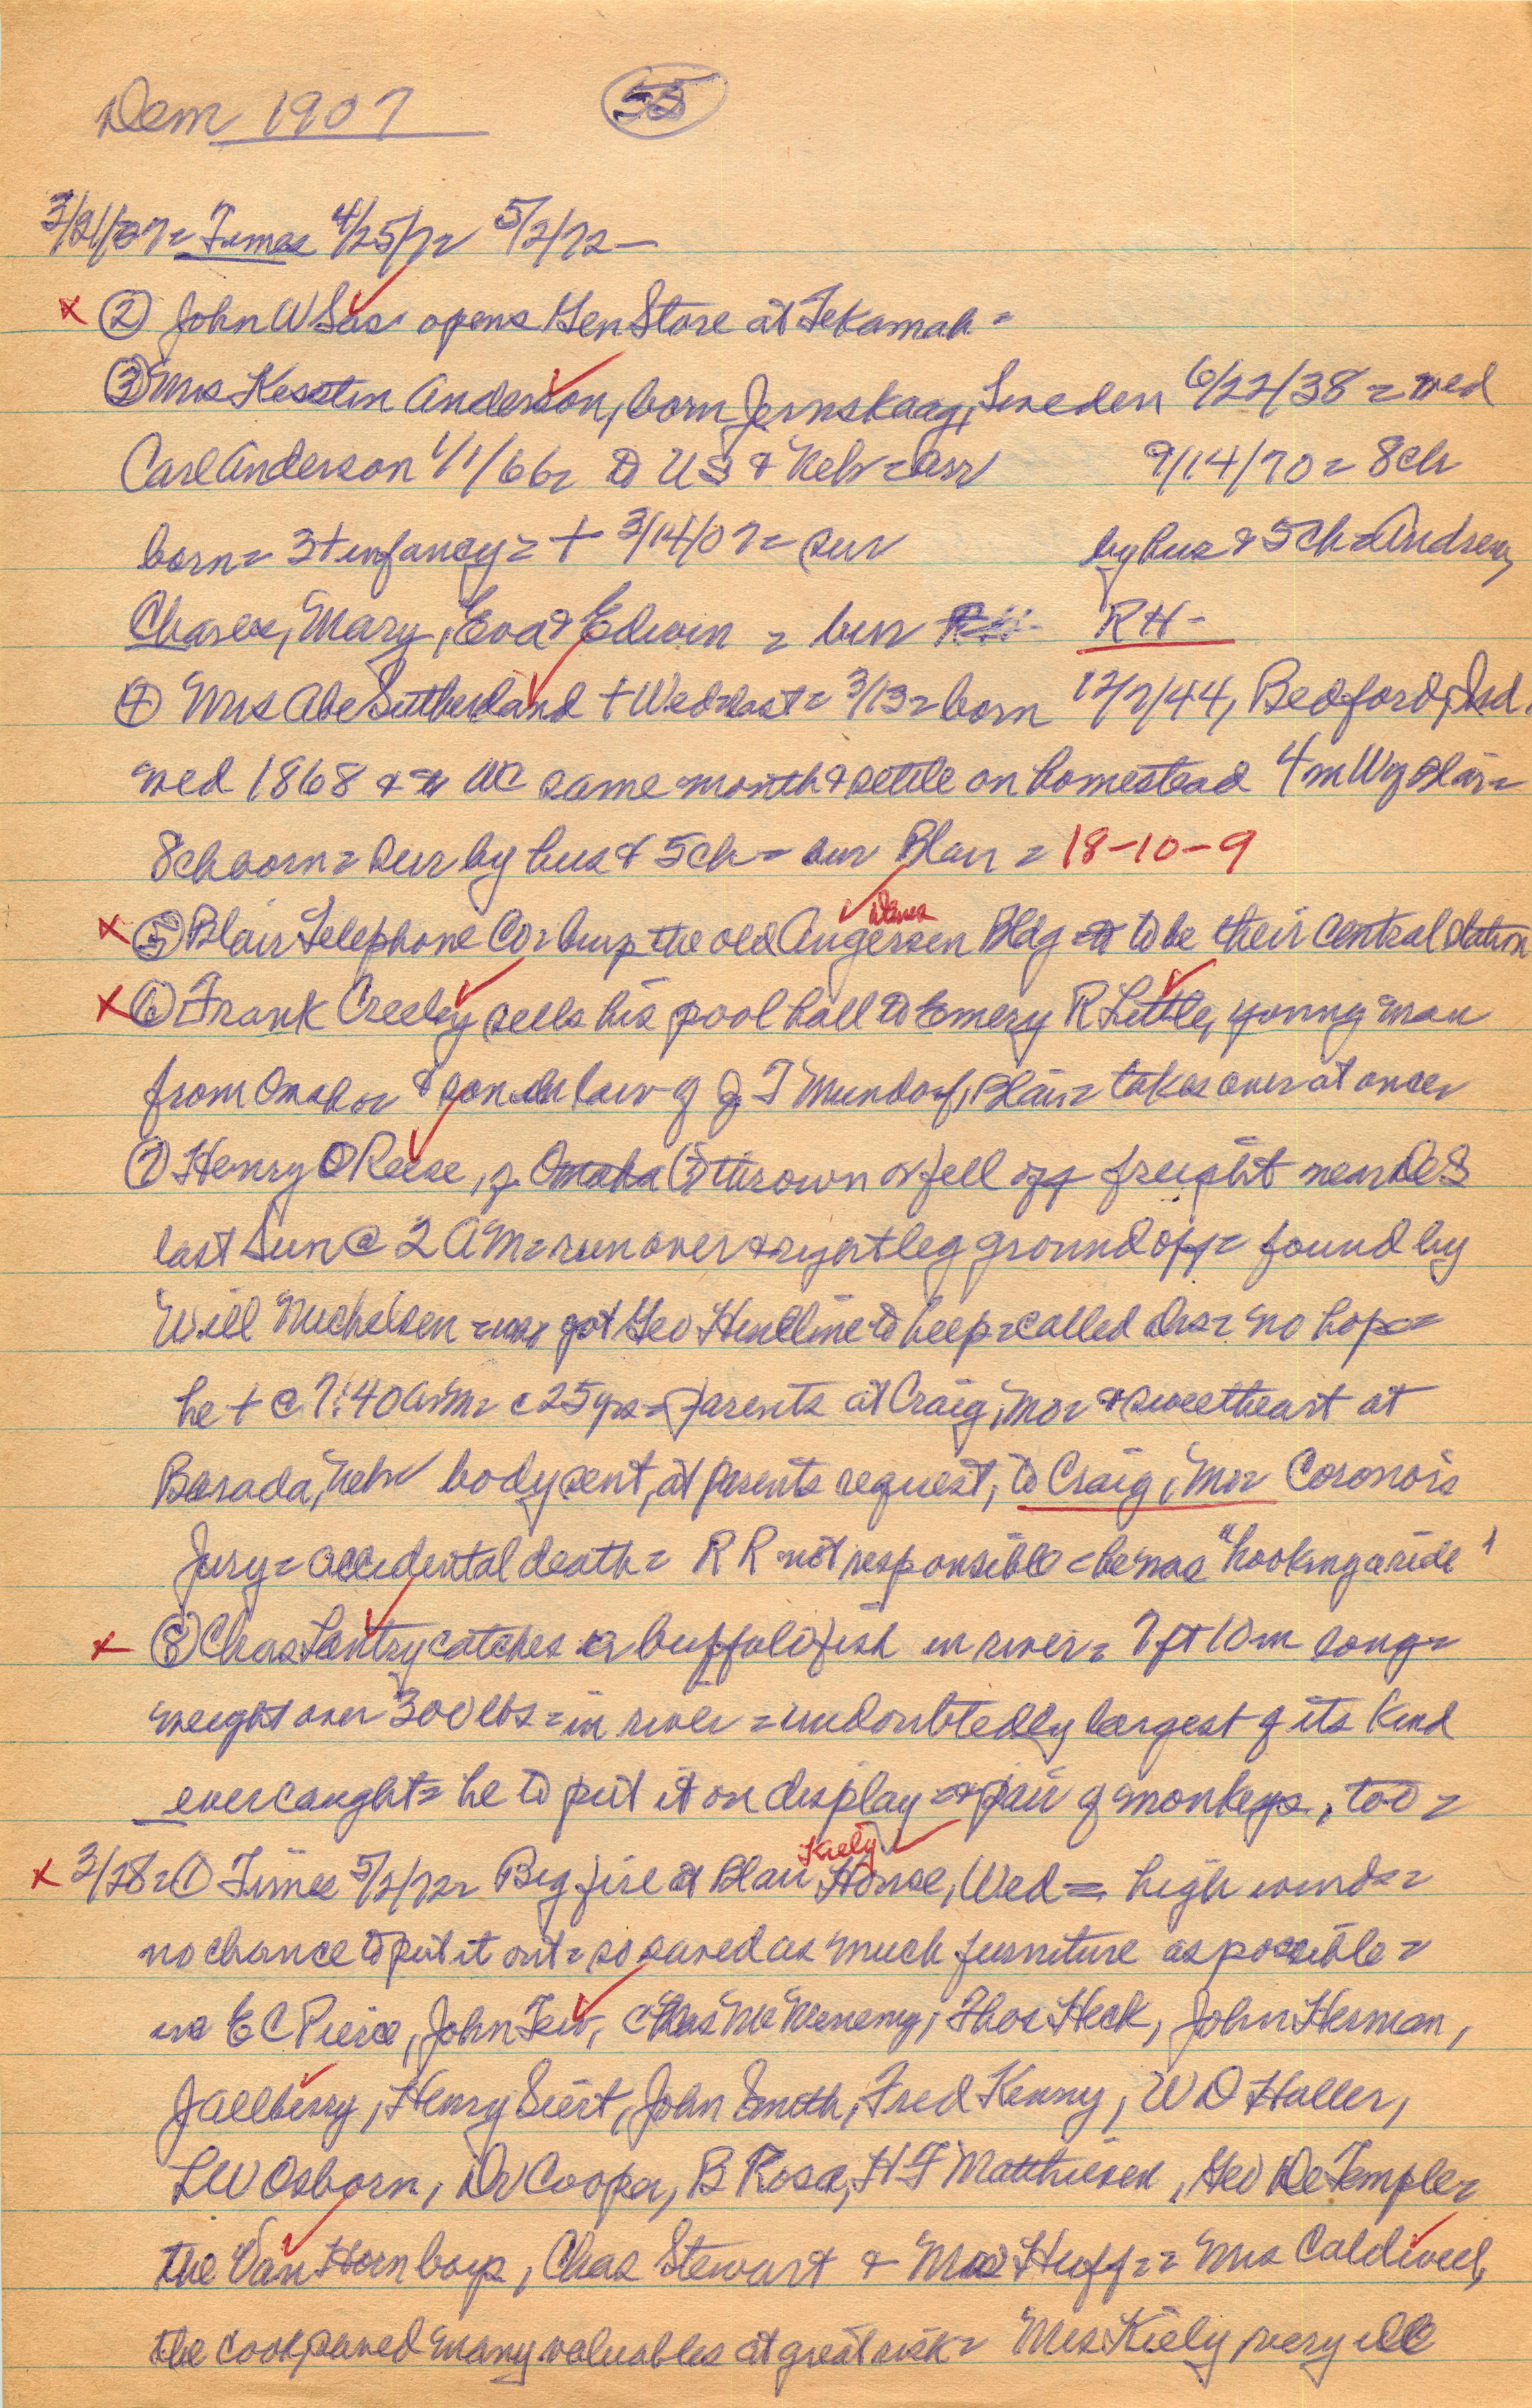 Dem 1907 55
3/21/07= Times 4/25/72 5/2/72—
x ② John W Sas opens Gen Store at Tekamah=
③ Mrs Kesstin Anderson, born Jernskaag, Sweden 6/22/38 = wed
Carl Anderson 1/1/66= to US & Nebr = arr 9/14/70 = 8 ch
born= 3 + infancy= + 3/14/07= sur by hus & 5 ch = Andrew,
Charles, Mary, Eva & Edwin = bur RH-
④ Mrs Abe Sutherland + Wed last= 3/13= born 12/7/44, Bedford, Ind.
wed 1868 & to WC same month & settle on homestead 4 m W of Blair=
8 ch born= sur by hus & 5 ch = bur Blair = 18-10-9
x ⑤ Blair Telephone Co buys the old Angersen Bldg = to be their central station
x ⑥ Frank Creeley sells his pool hall to Emery R Little, young man
from Omaha & son in law of J T Mundorf, Blair = takes over at once=
⑦ Henry O Reese, f. Omaha (?) thrown or fell off freight near DeS
last Sun @ 2 AM= run over & right leg ground off= found by
Will Michelsen = got Geo Henlline to help = called Drs= no hope=
he + @ 7:40 am= c 25 yrs = parents at Craig, Mo= & sweetheart at
Barada, Nebr body sent, at parents request, to Craig, Mo= Coronors
Jury = accidental death= R R not responsible = he was "hooking a ride"
x ⑧ Chas Lantry catches a buffalo fish in river= 7 ft 10 in long=
weight over 300 lbs = in river = undoubtedly largest of its kind
ever caught= he to put it on display = & pair of monkeys, too =
x 3/28= ① Times 5/2/72= Big fire at Blair Kiely House, Wed = high winds=
no chance to put it out= so saved as much furniture as possible=
E C Pierce, John Tew, Chas McMenemy, Thos Heck, John Herman,
J Allbery, Henry Siert, John Smith, Fred Kenny, W D Haller,
L W Osborn, Dr Cooper, B Rosa, H F Matthiesen, Geo DeTemple=
the Van Horn boys, Chas Stewart & Huff== Mrs Caldwell,
the cook saved many valuables at great risk= Mrs Kiely very ill